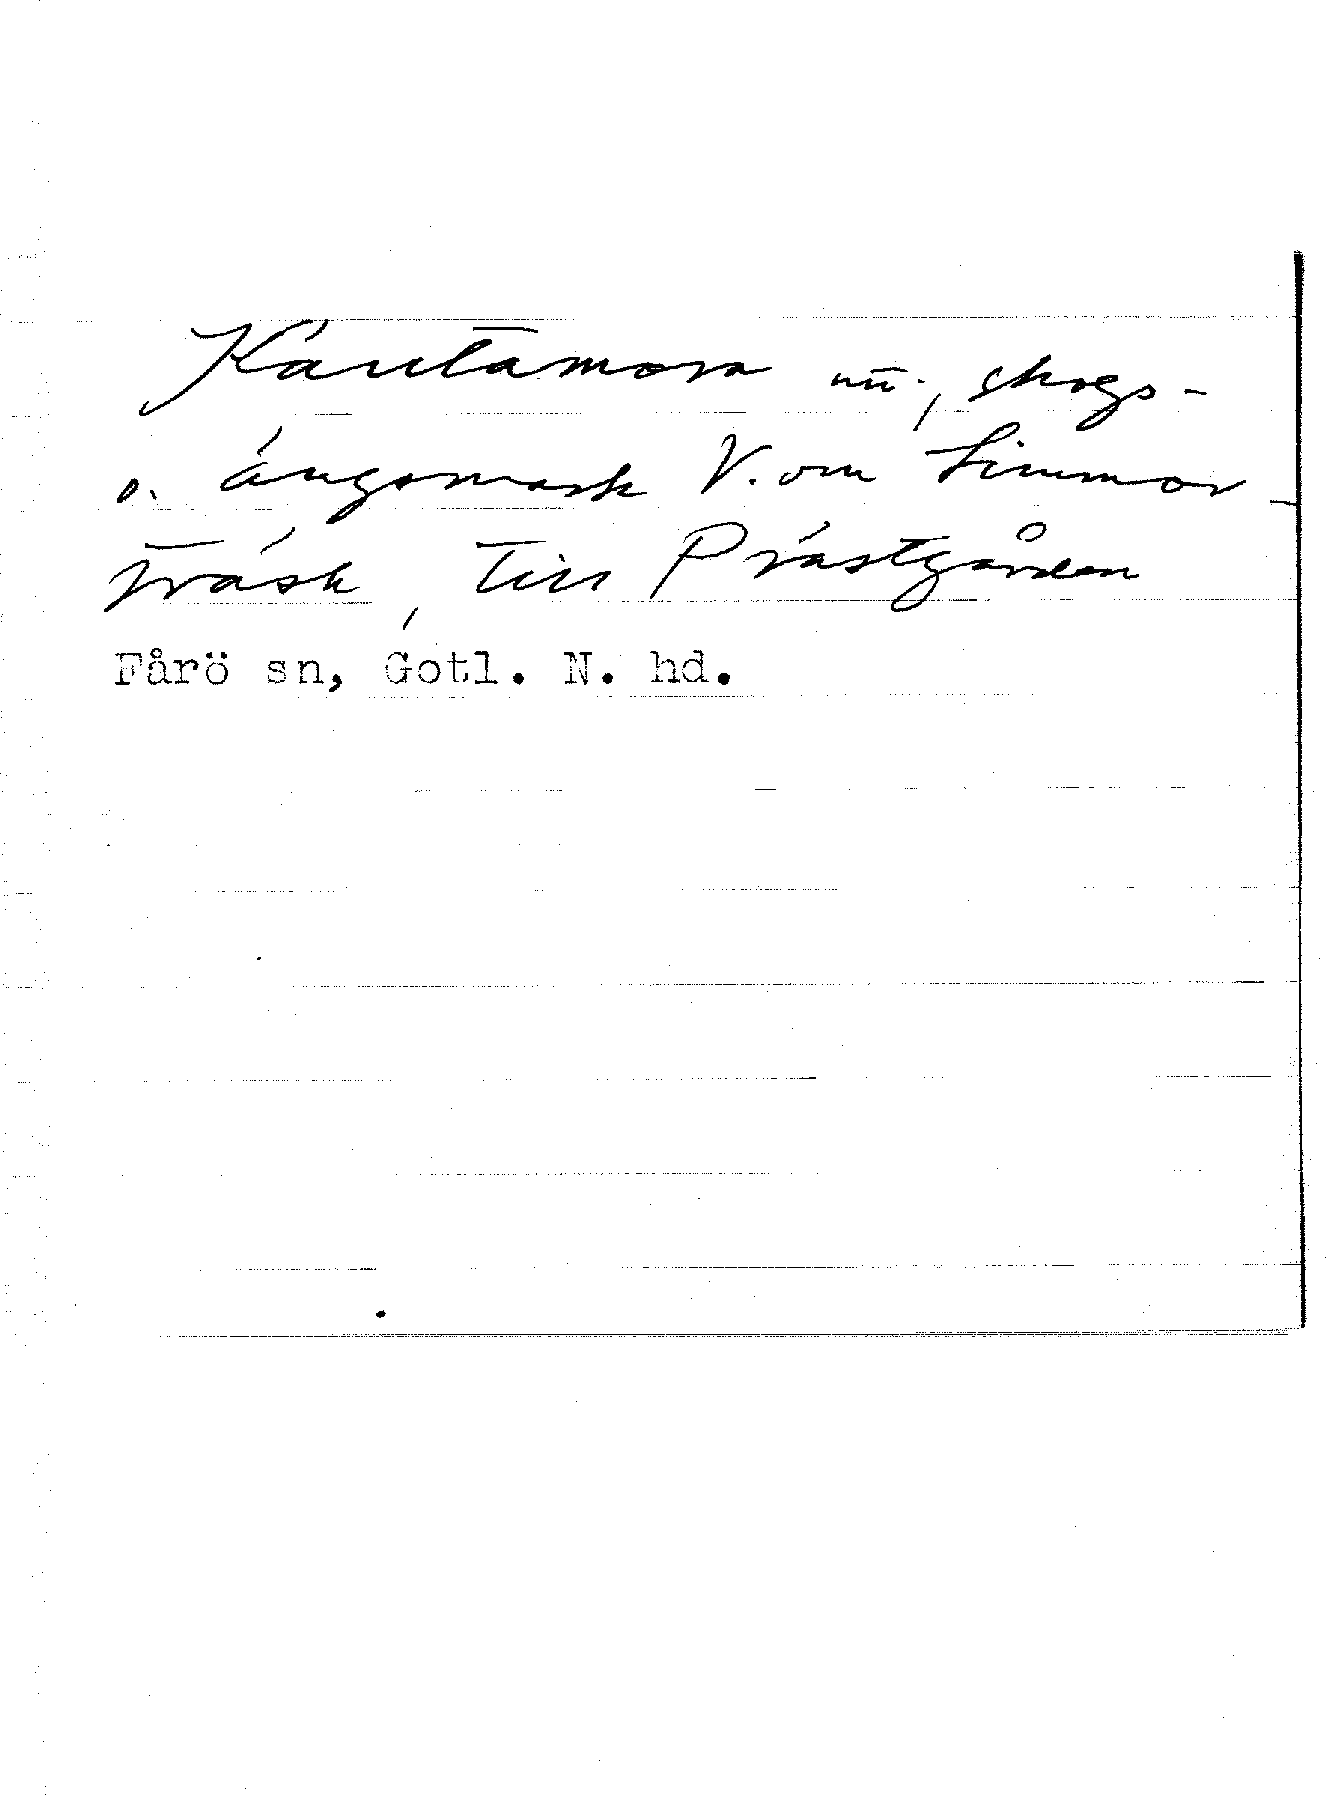 Käutamorn nu., skogs-
o. ängsmark V. om Limmor-
träsk, till Prästgården
Fårö sn, Gotl. N. hd.